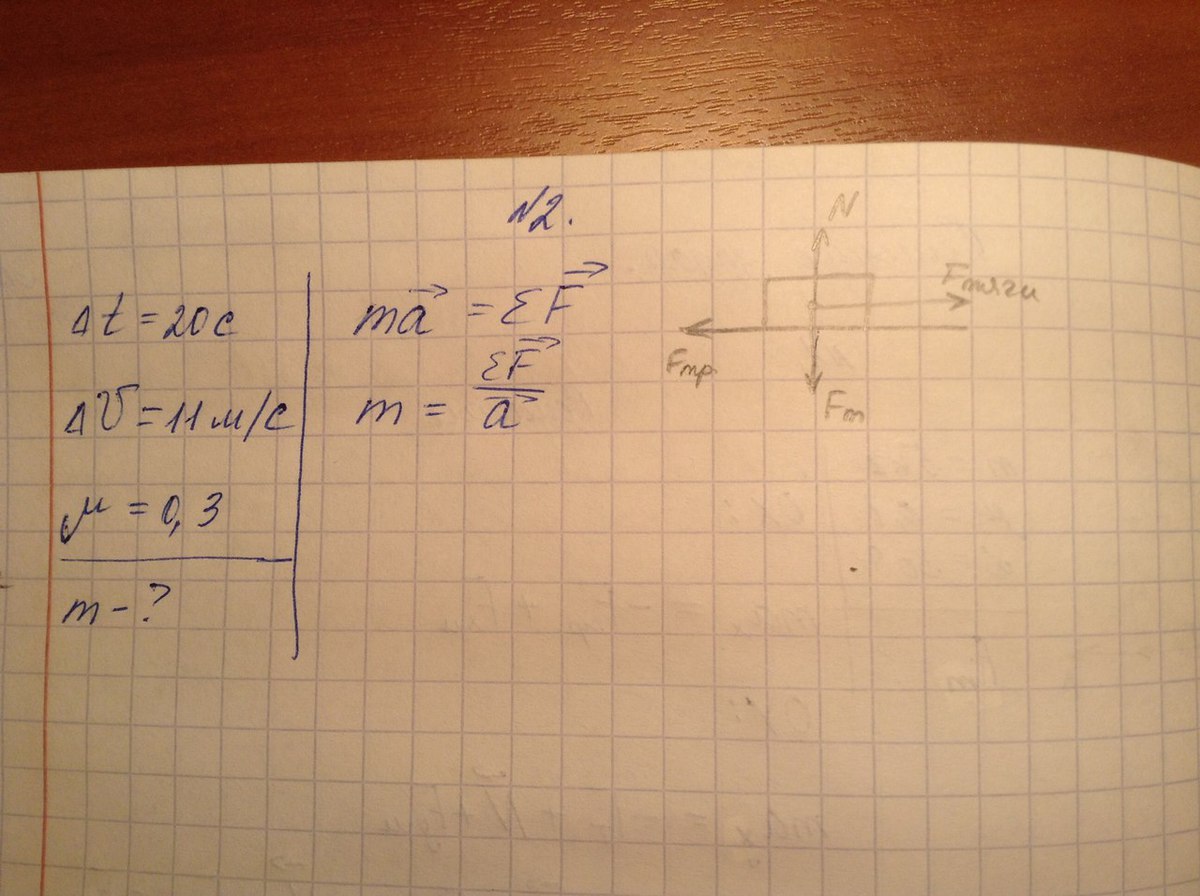 N2.
Δt = 20 с
Δv = 11 м/с
μ = 0,3
m - ?
ma⃗ = ΣF⃗
m = ΣF⃗ / a⃗
N
Fтяги
Fтр.
Fт